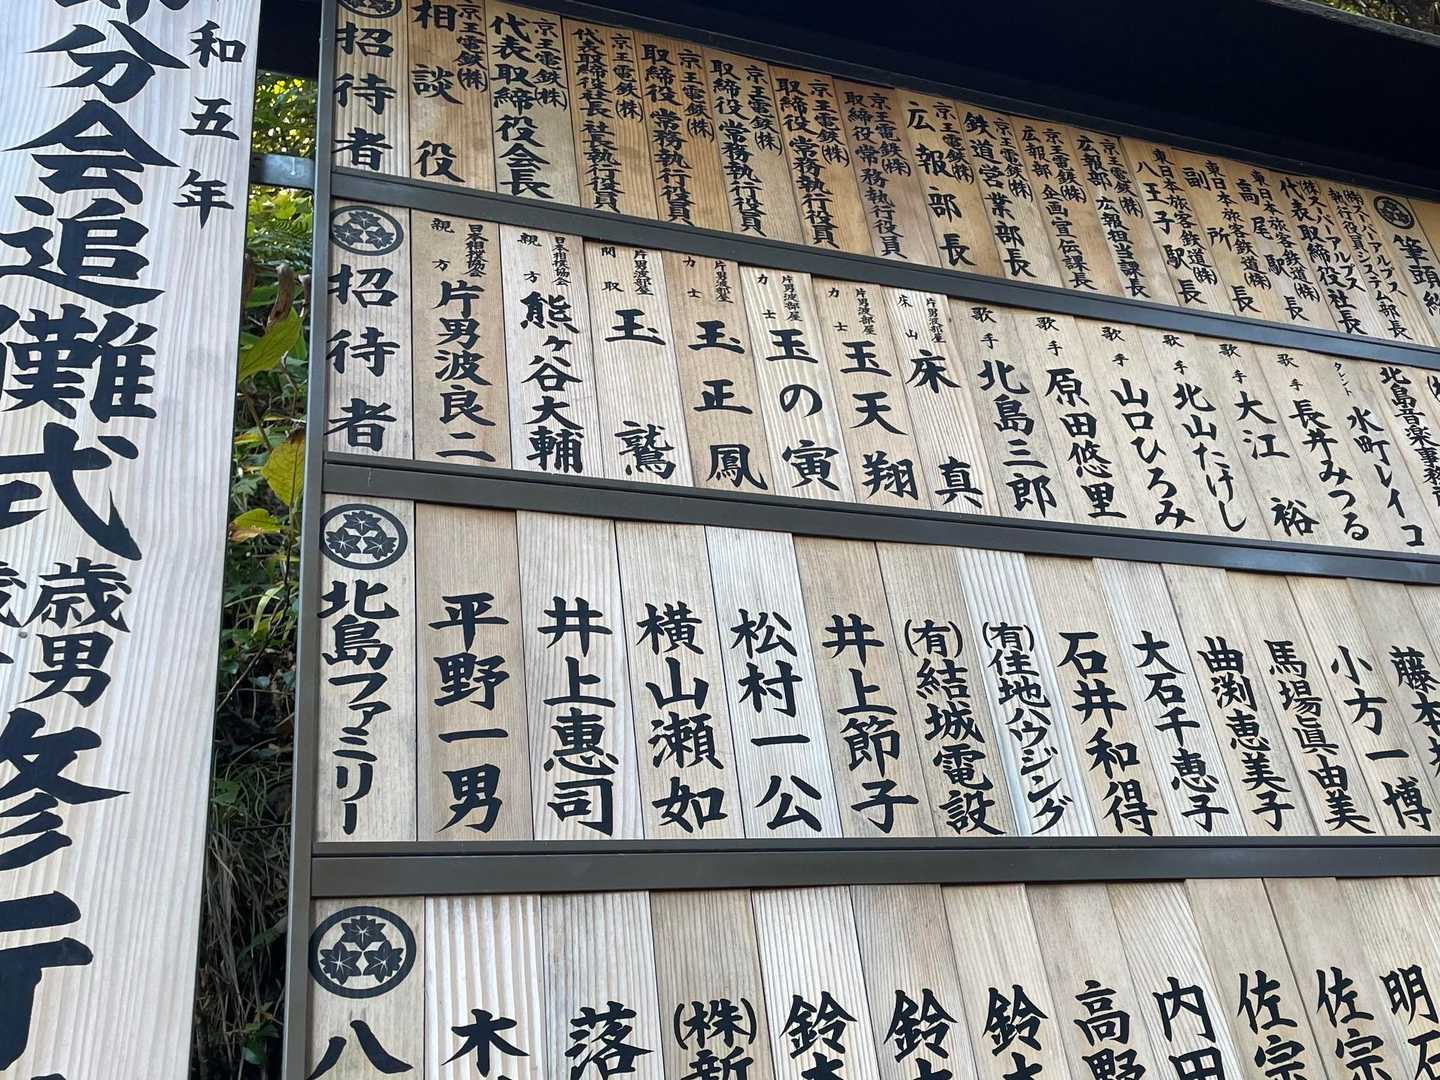 和五年
部分会追儺式
歳男修行
招待者
京王電鉄㈱
相談役
京王電鉄㈱
代表取締役会長
京王電鉄㈱
代表取締役社長 社長執行役員
京王電鉄㈱
取締役 常務執行役員
京王電鉄㈱
取締役 常務執行役員
京王電鉄㈱
取締役 常務執行役員
京王電鉄㈱
取締役 常務執行役員
京王電鉄㈱
広報部長
京王電鉄㈱
鉄道営業部長
京王電鉄㈱
広報部 企画宣伝課長
京王電鉄㈱
広報部 広報担当課長
東日本旅客鉄道㈱
八王子駅長
東日本旅客鉄道㈱
副所長
東日本旅客鉄道㈱
高尾駅長
㈱スーパーアルプス
代表取締役社長
㈱スーパーアルプス
執行役員システム部長
筆頭総
招待者
日本相撲協会
親方
片男波良二
日本相撲協会
親方
熊ヶ谷大輔
片男波部屋
関取
玉鷲
片男波部屋
力士
玉正鳳
片男波部屋
力士
玉の寅
片男波部屋
力士
玉天翔
片男波部屋
床山
床真
歌手
北島三郎
歌手
原田悠里
歌手
山口ひろみ
歌手
北山たけし
歌手
大江裕
歌手
長井みつる
タレント
水町レイコ
北島音楽事務所
北島ファミリー
平野一男
井上惠司
横山瀬如
松村一公
井上節子
(有)結城電設
(有)佳地ハウジング
石井和得
大石千恵子
曲渕恵美子
馬場眞由美
小方一博
藤本
八
木
落
(株)新
鈴木
鈴木
鈴木
高野
内田
佐宗
佐宗
明石